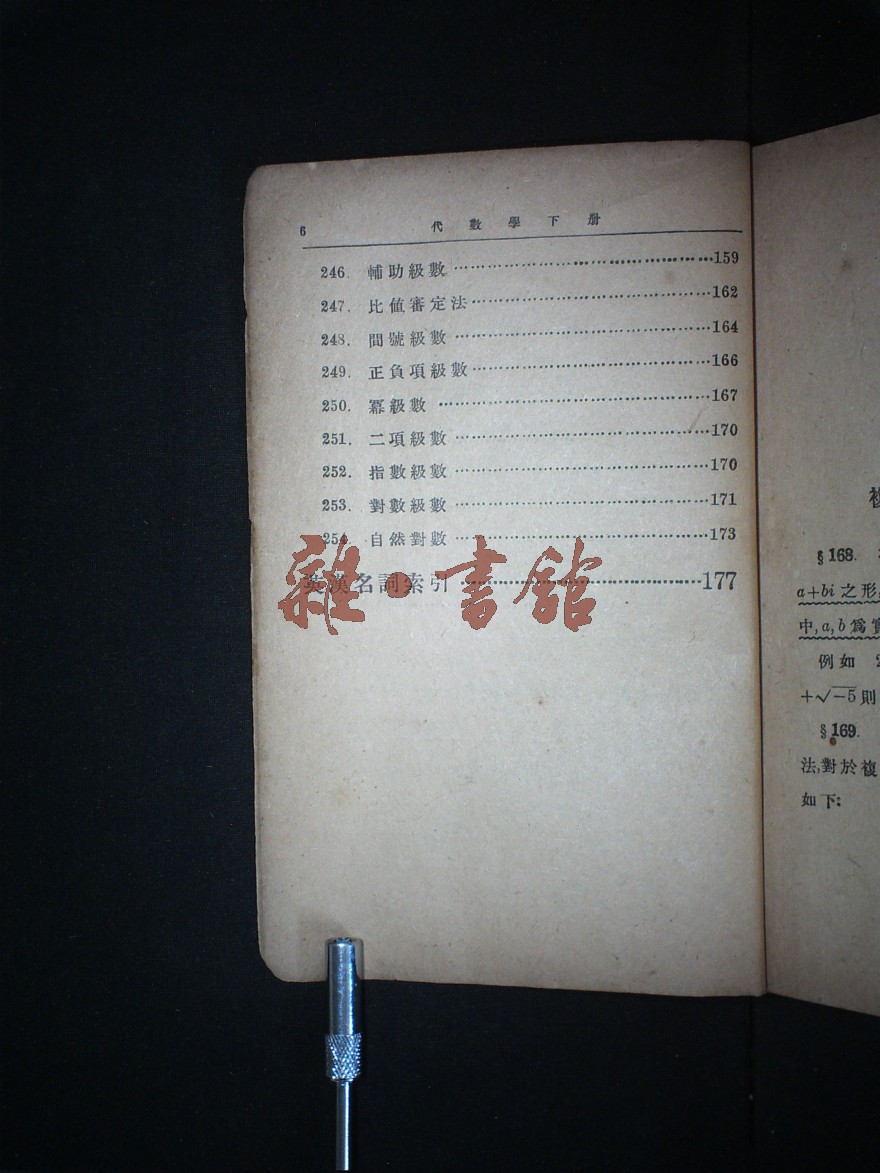 6 代數學下册
246. 輔助級數 159
247. 比值審定法 162
248. 間號級數 164
249. 正負項級數 166
250. 冪級數 167
251. 二項級數 170
252. 指數級數 170
253. 對數級數 171
254. 自然對數 173
英漢名詞索引 177
雜·書館
複
§168.
a+bi 之形,
中,a,b 爲實
例如 2
+√−5 則
§169.
法,對於複
如下: